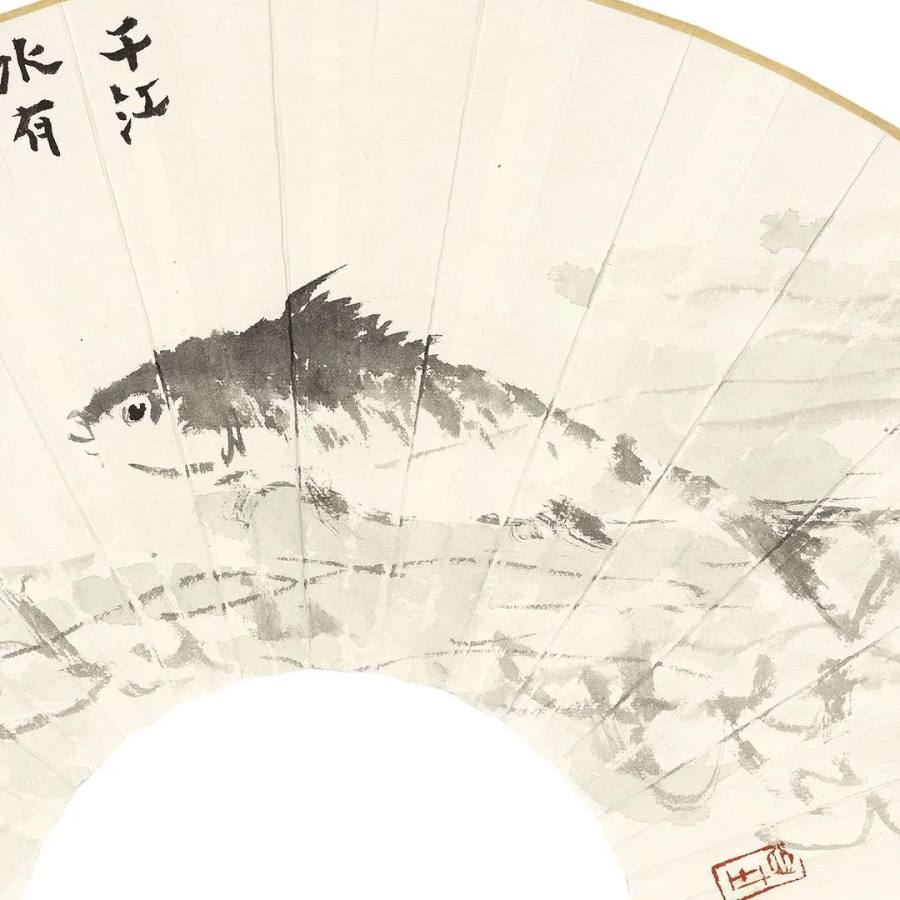 千江
水有